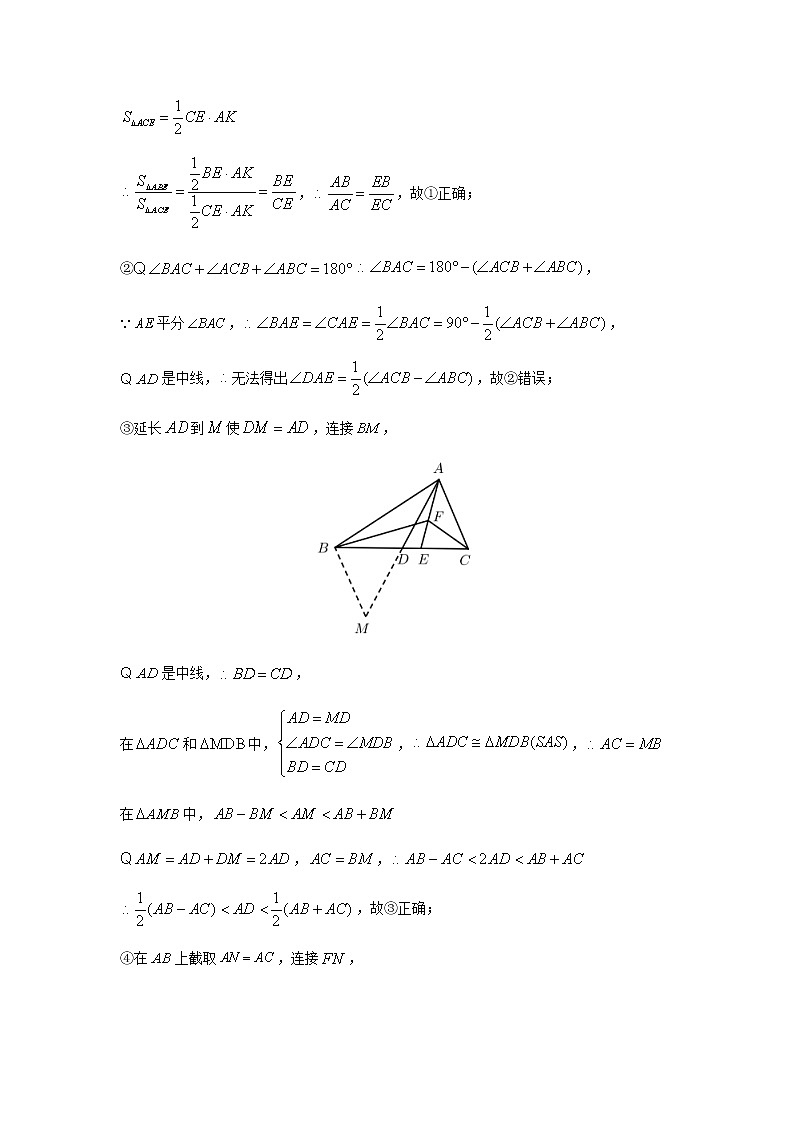 $S_{\Delta ACE}=\frac{1}{2}CE\cdot AK$
∴$\frac{S_{\Delta ABE}}{S_{\Delta ACE}}=\frac{\frac{1}{2}BE\cdot AK}{\frac{1}{2}CE\cdot AK}=\frac{BE}{CE}$，∴$\frac{AB}{AC}=\frac{EB}{EC}$，故①正确；
②Q ∠BAC+∠ACB+∠ABC=180° ∴ ∠BAC=180°−(∠ACB+∠ABC)，
∵ AE平分∠BAC，∴ ∠BAE=∠CAE=$\frac{1}{2}$∠BAC=90°−$\frac{1}{2}$(∠ACB+∠ABC)，
Q AD是中线，∴无法得出∠DAE=$\frac{1}{2}$(∠ACB−∠ABC)，故②错误；
③延长AD到M使DM=AD，连接BM，
A
F
B
D E C
M
Q AD是中线，∴ BD=CD，
在ΔADC和ΔMDB中，$\begin{cases}AD=MD\\∠ADC=∠MDB\\BD=CD\end{cases}$，∴ΔADC≅ΔMDB(SAS)，∴ AC=MB
在ΔAMB中，AB−BM<AM<AB+BM
Q AM=AD+DM=2AD，AC=BM，∴ AB−AC<2AD<AB+AC
∴$\frac{1}{2}$(AB−AC)<AD<$\frac{1}{2}$(AB+AC)，故③正确；
④在AB上截取AN=AC，连接FN，